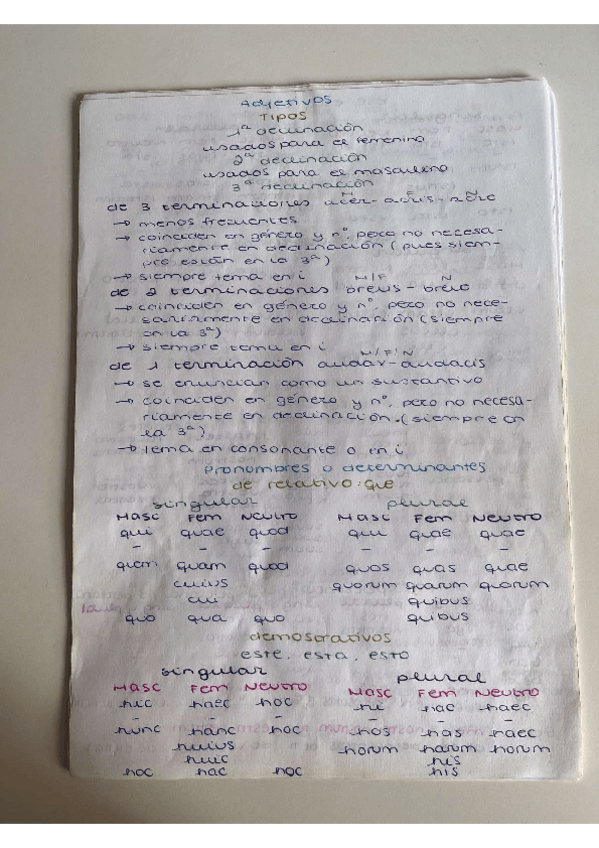 Adjetivos
Tipos
1ª declinación
usados para el femenino
2ª declinación
usados para el masculino
3ª declinación
M F N
de 3 terminaciones acer-acris-acre
→ menos frecuentes
→ coinciden en género y nº, pero no necesa-
riamente en declinación (pues siem-
pre están en la 3ª)
→ siempre tema en i
M/F N
de 2 terminaciones brevis-breve
→ coinciden en género y nº, pero no nece-
sariamente en declinación (siempre
en la 3ª)
→ siempre tema en i
M/F/N
de 1 terminación audax-audacis
→ se enuncian como un sustantivo
→ coinciden en género y nº, pero no necesa-
riamente en declinación. (siempre en
la 3ª)
→ Tema en consonante o en i
Pronombres o determinantes
de relativo: que
singular plural
Masc Fem Neutro Masc Fem Neutro
qui quae quod qui quae quae
- - - - - -
quem quam quod quos quas quae
cuius quorum quarum quorum
cui quibus
quo qua quo quibus
demostrativos
este, esta, esto
singular plural
Masc Fem Neutro Masc Fem Neutro
hic haec hoc hi hae haec
- - - - - -
hunc hanc hoc hos has haec
huius horum harum horum
huic his
hoc hac hoc his